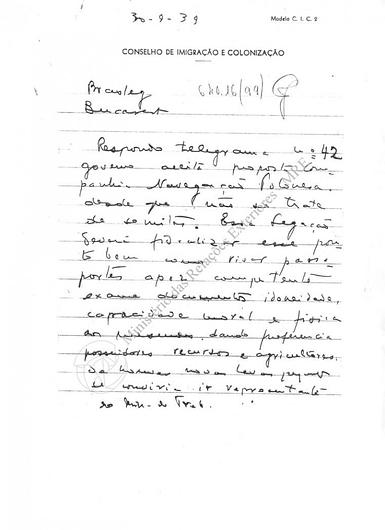 30-9-39
Modelo C. I. C. 2
CONSELHO DE IMIGRAÇÃO E COLONIZAÇÃO
Brasleg 640.16(99)
Bucarest
Respondo telegrama nº 42
governo aceita proposta Com-
panhia Navegação Polonesa,
desde que não se trate
de semitas. Essa Legação
deverá fiscalizar esse pon-
to bem como visar passa-
portes após competente
exame documentos idoneidade,
capacidade moral e fisica
dos mesmos, dando preferencia
possuidores recursos e agricultores.
novas levas
se conviria ir representante
do Min. do Trab.
Ministério das Relações Exteriores - MRE